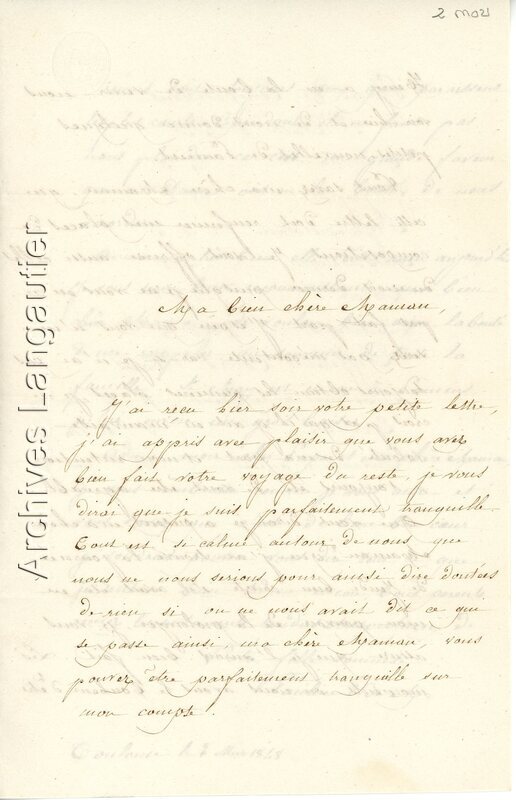 2 mars
Ma bien chère Maman,
J'ai reçu hier soir votre petite lettre,
j'ai appris avec plaisir que vous avez
bien fait votre voyage du reste, je vous
dirai que je suis parfaitement tranquille.
Tout est si calme autour de nous que
nous ne nous serions pour ainsi dire doutées
de rien si on ne nous avait dit ce que
se passe ainsi, ma chère Maman, vous
pouvez être parfaitement tranquille sur
mon compte.
Toulouse le 2 Mars 1848
Archives Langautier